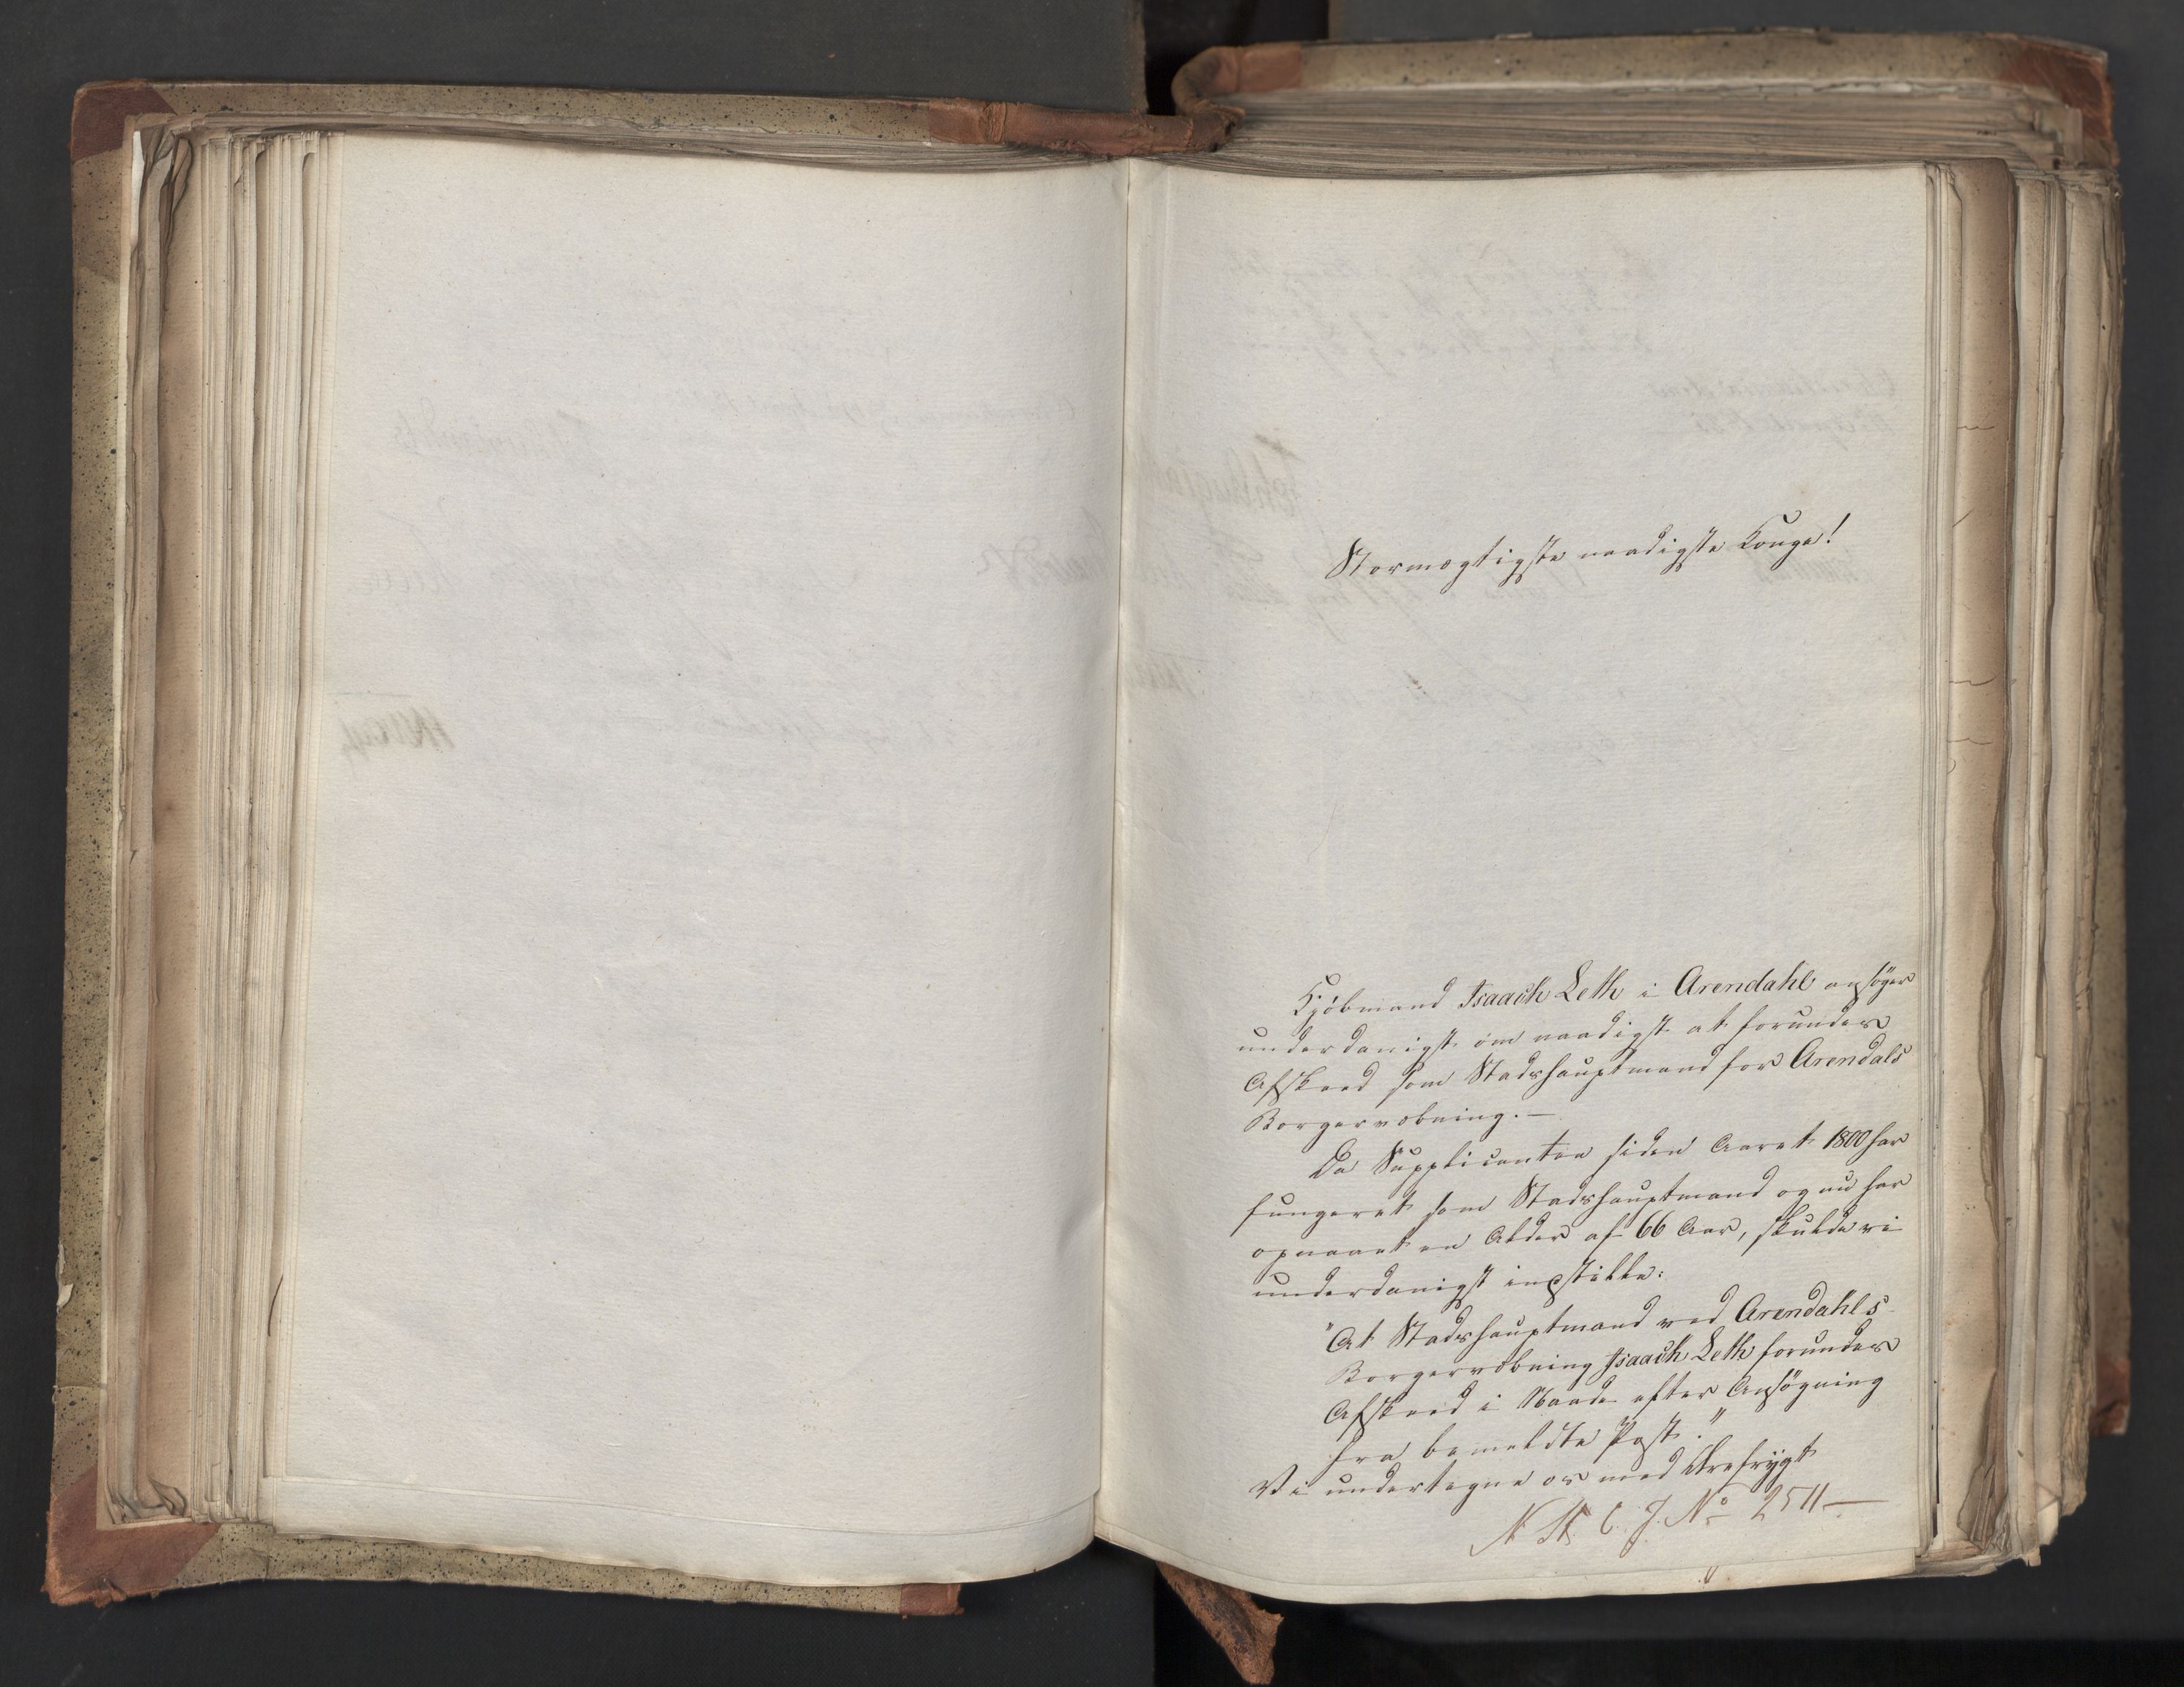 Stormægtigste naadigste Konge!
Kjøbmand Isaach Leth i Arendahl ansøger
underdanigst om naadigst at forundes
Afskeed som Stadshauptmand for Arendals
Borgervæbning. —
Da Supplicanten siden Aaret 1800 har
fungeret som Stadshauptmand og nu har
opnaaet en Alder af 66 Aar, skulde vi
underdanigst indstille:
"At Stadshauptmand ved Arendahls
Borgervæbning Isaach Leth forundes
Afskeed i Naade efter Ansøgning
fra bemeldte Post."
Vi undertegne os med Ærefrygt
N. St. C. J. No 2511—